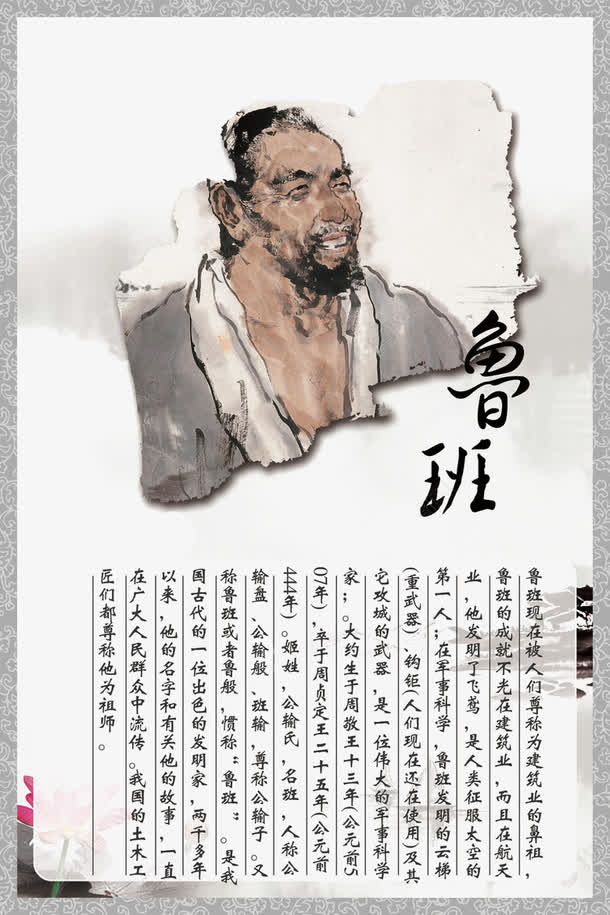 魯班
鲁班现在被人们尊称为建筑业的鼻祖，
鲁班的成就不光在建筑业，而且在航天
业，他发明了飞鸢，是人类征服太空的
第一人；在军事科学，鲁班发明的云梯
(重武器)、钩钜(人们现在还在使用)及其
它攻城的武器，是一位伟大的军事科学
家；。大约生于周敬王十三年(公元前5
07年)，卒于周贞定王二十五年(公元前
444年)。姬姓，公输氏，名班，人称公
输盘、公输般、班输，尊称公输子。又
称鲁班或者鲁般，惯称“鲁班”。是我
国古代的一位出色的发明家，两千多年
以来，他的名字和有关他的故事，一直
在广大人民群众中流传。我国的土木工
匠们都尊称他为祖师。